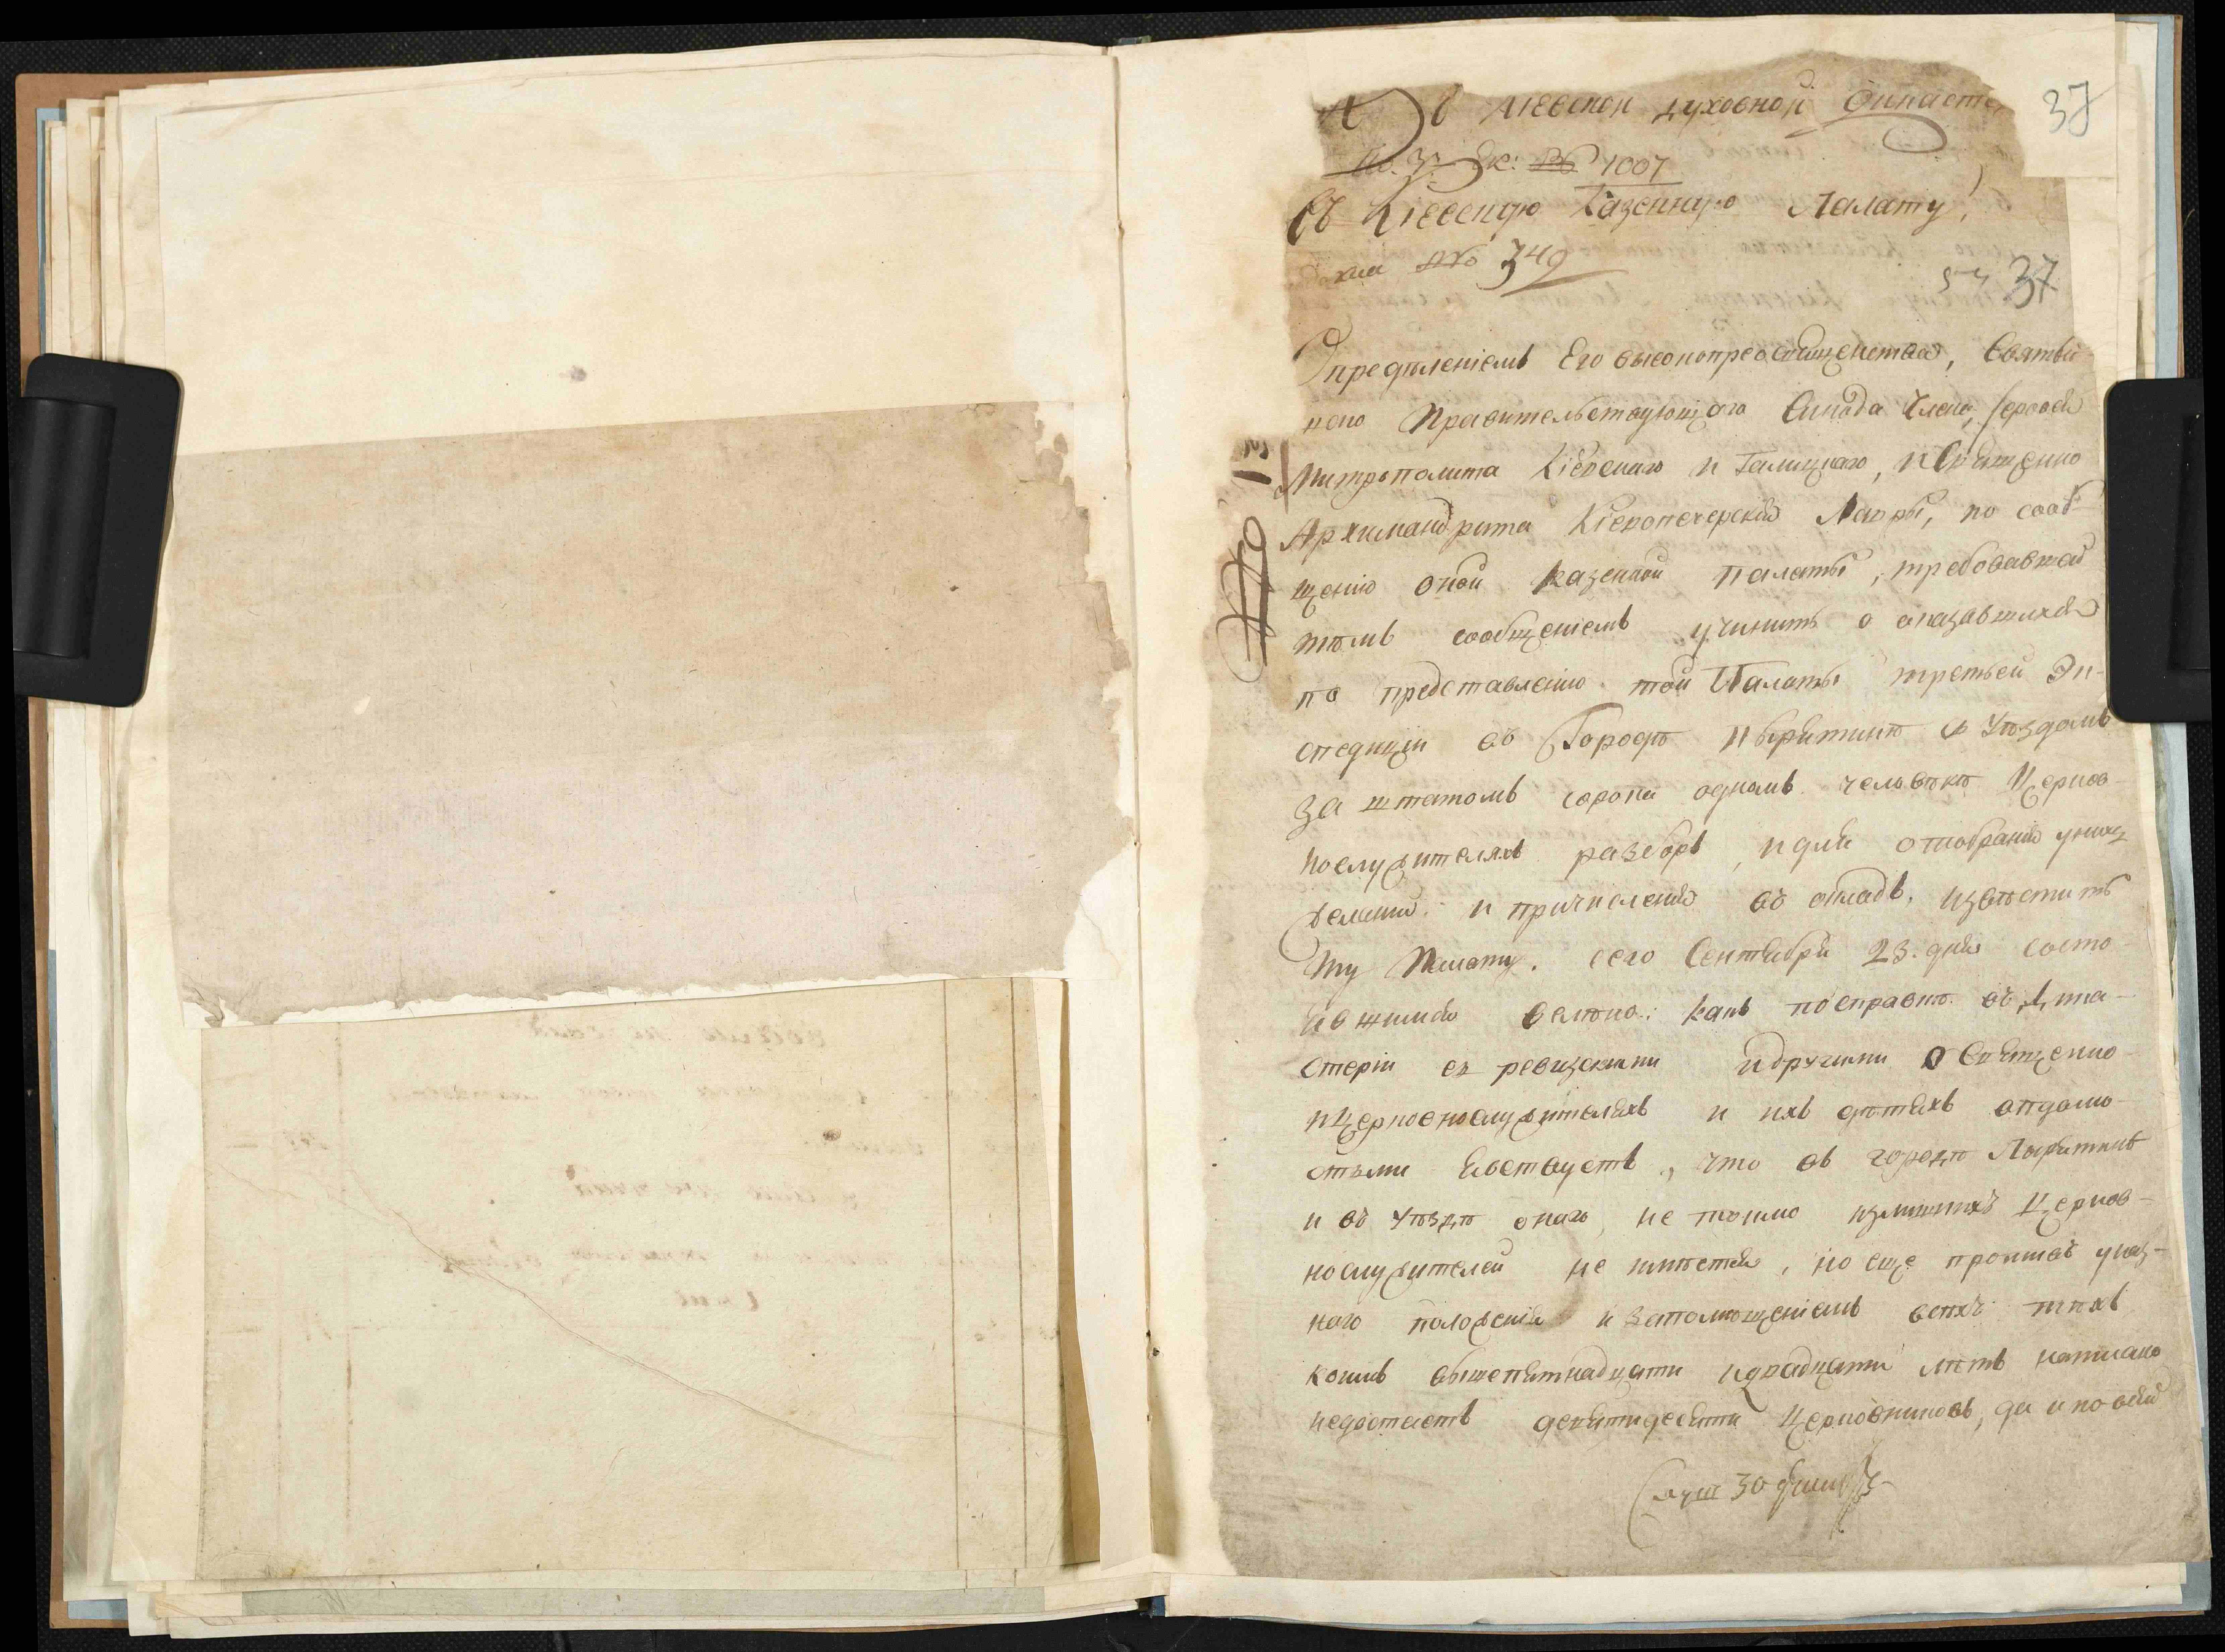 37
Киевской духовной Дикасте
Эк: № 1007
въ Киевскую Казенную Палату!
№ 349
37
Определениемъ Его высокопреосвященства, Святей
шего Правительствующаго Синода Члена, Іерофея
Митрополита Кіевскаго и Галицкаго, и Священно
Архимандрита Кіевопечерскія Лавры, по сооб
щению оной казенной палаты, требовавшей
темъ сообщеніемъ учинить о оказавшихся
по представлению той Палаты третьей Эк-
спедиціи въ Городе Пырятине съ Уездомъ
за штатомъ сорока одномъ человеке Церков-
послужителяхъ разборъ, и для отобрания
и причисления въ окладъ, известить
ту Палату. сего Сентября 23. дня состо-
явшимся велено: какъ по справке въ Дика-
стеріи съ ревизскими и другими о Священно
и Церковнослужителяхъ и ихъ детяхъ ведомо-
стьми явствуетъ, что въ городе Пырятине
и въ Уезде онаго, не токмо излишнихъ Церков-
нослужителей не имеется, но еще противъ указ-
наго положения и вся
коимъ вышепятнадцати и двадцати летъ написано
недостаетъ девятидесяти Церковниковъ, да и по всей
30